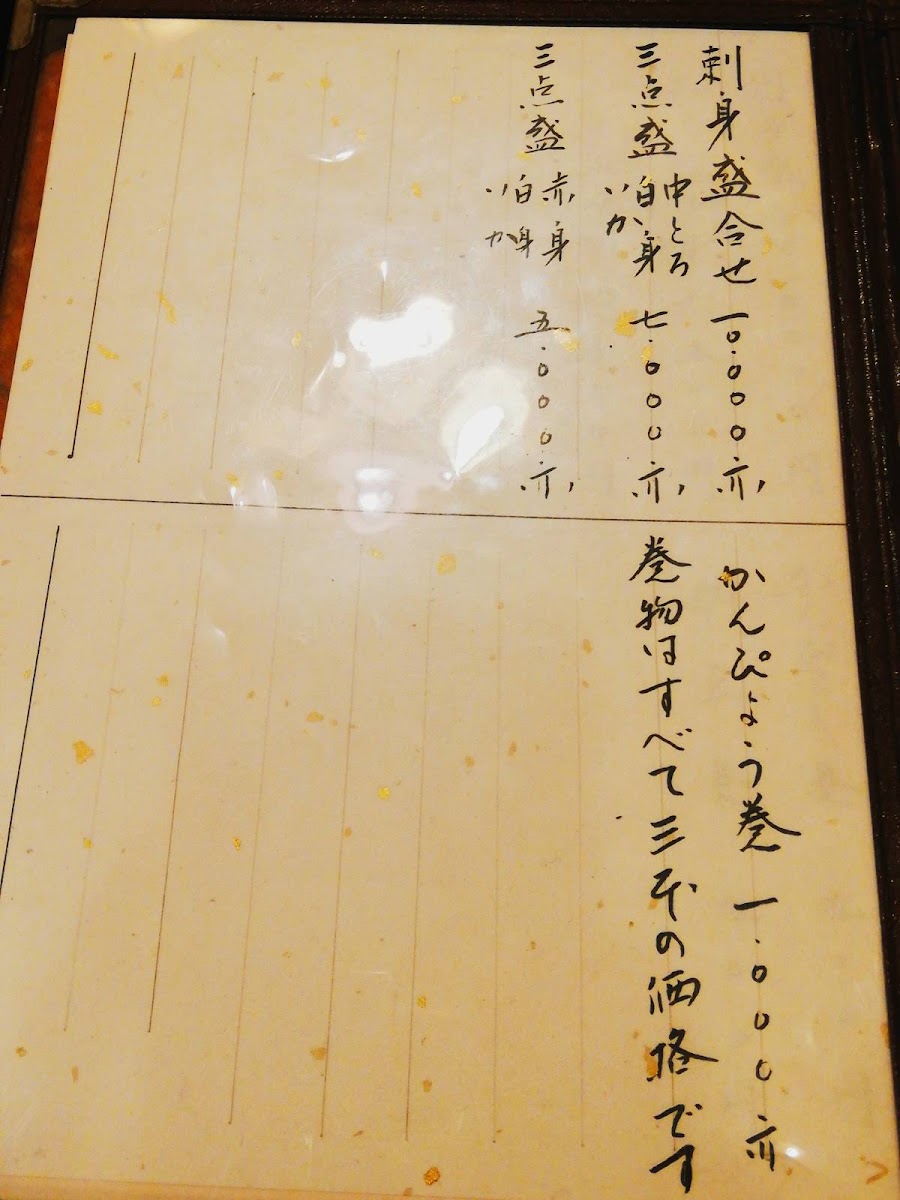 刺身盛合せ 一〇.〇〇〇円
三点盛 中とろ 白身 いか 七.〇〇〇円
三点盛 赤身 白身 いか 五.〇〇〇円
かんぴょう巻 一.〇〇〇円
巻物はすべて三本の価格です